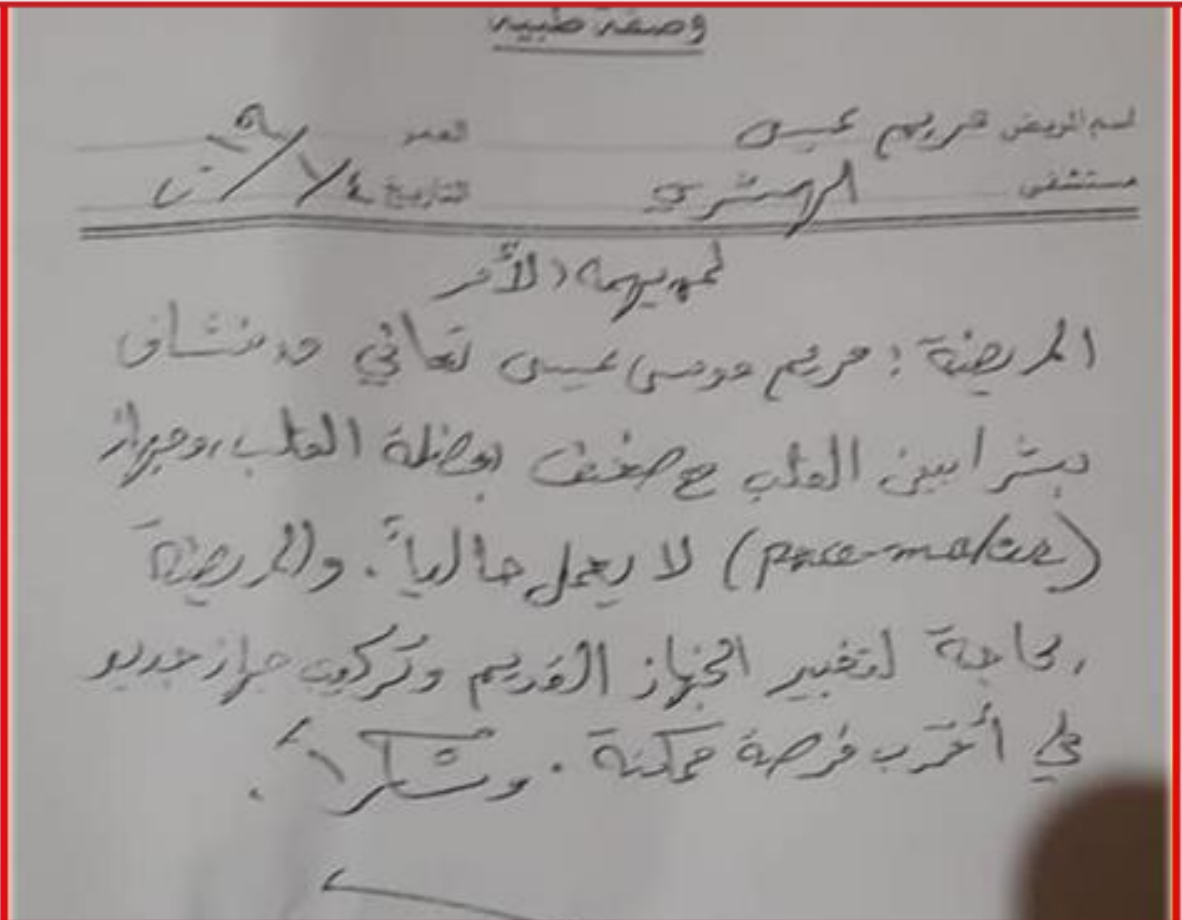 وصفة طبية
اسم المريض مريم عيسى العمر
مستشفى التاريخ
لمن يهمه الأمر
المريضة : مريم موسى عيسى تعاني من
بشرايين القلب مع ضعف بعضلة القلب، وجهاز
(pace-maker) لا يعمل حالياً. والمريضة
بحاجة لتغيير الجهاز القديم وتركيب جهاز جديد
في أقرب فرصة ممكنة. وشكراً.